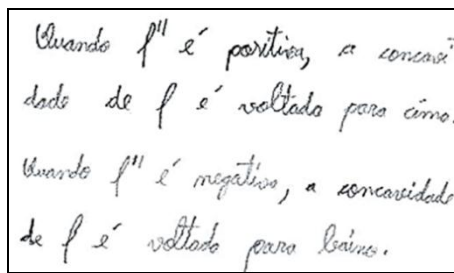 Quando f" é positiva, a concavi
dade de f é voltada para cima.
Quando f" é negativa, a concavidade
de f é voltada para baixo.